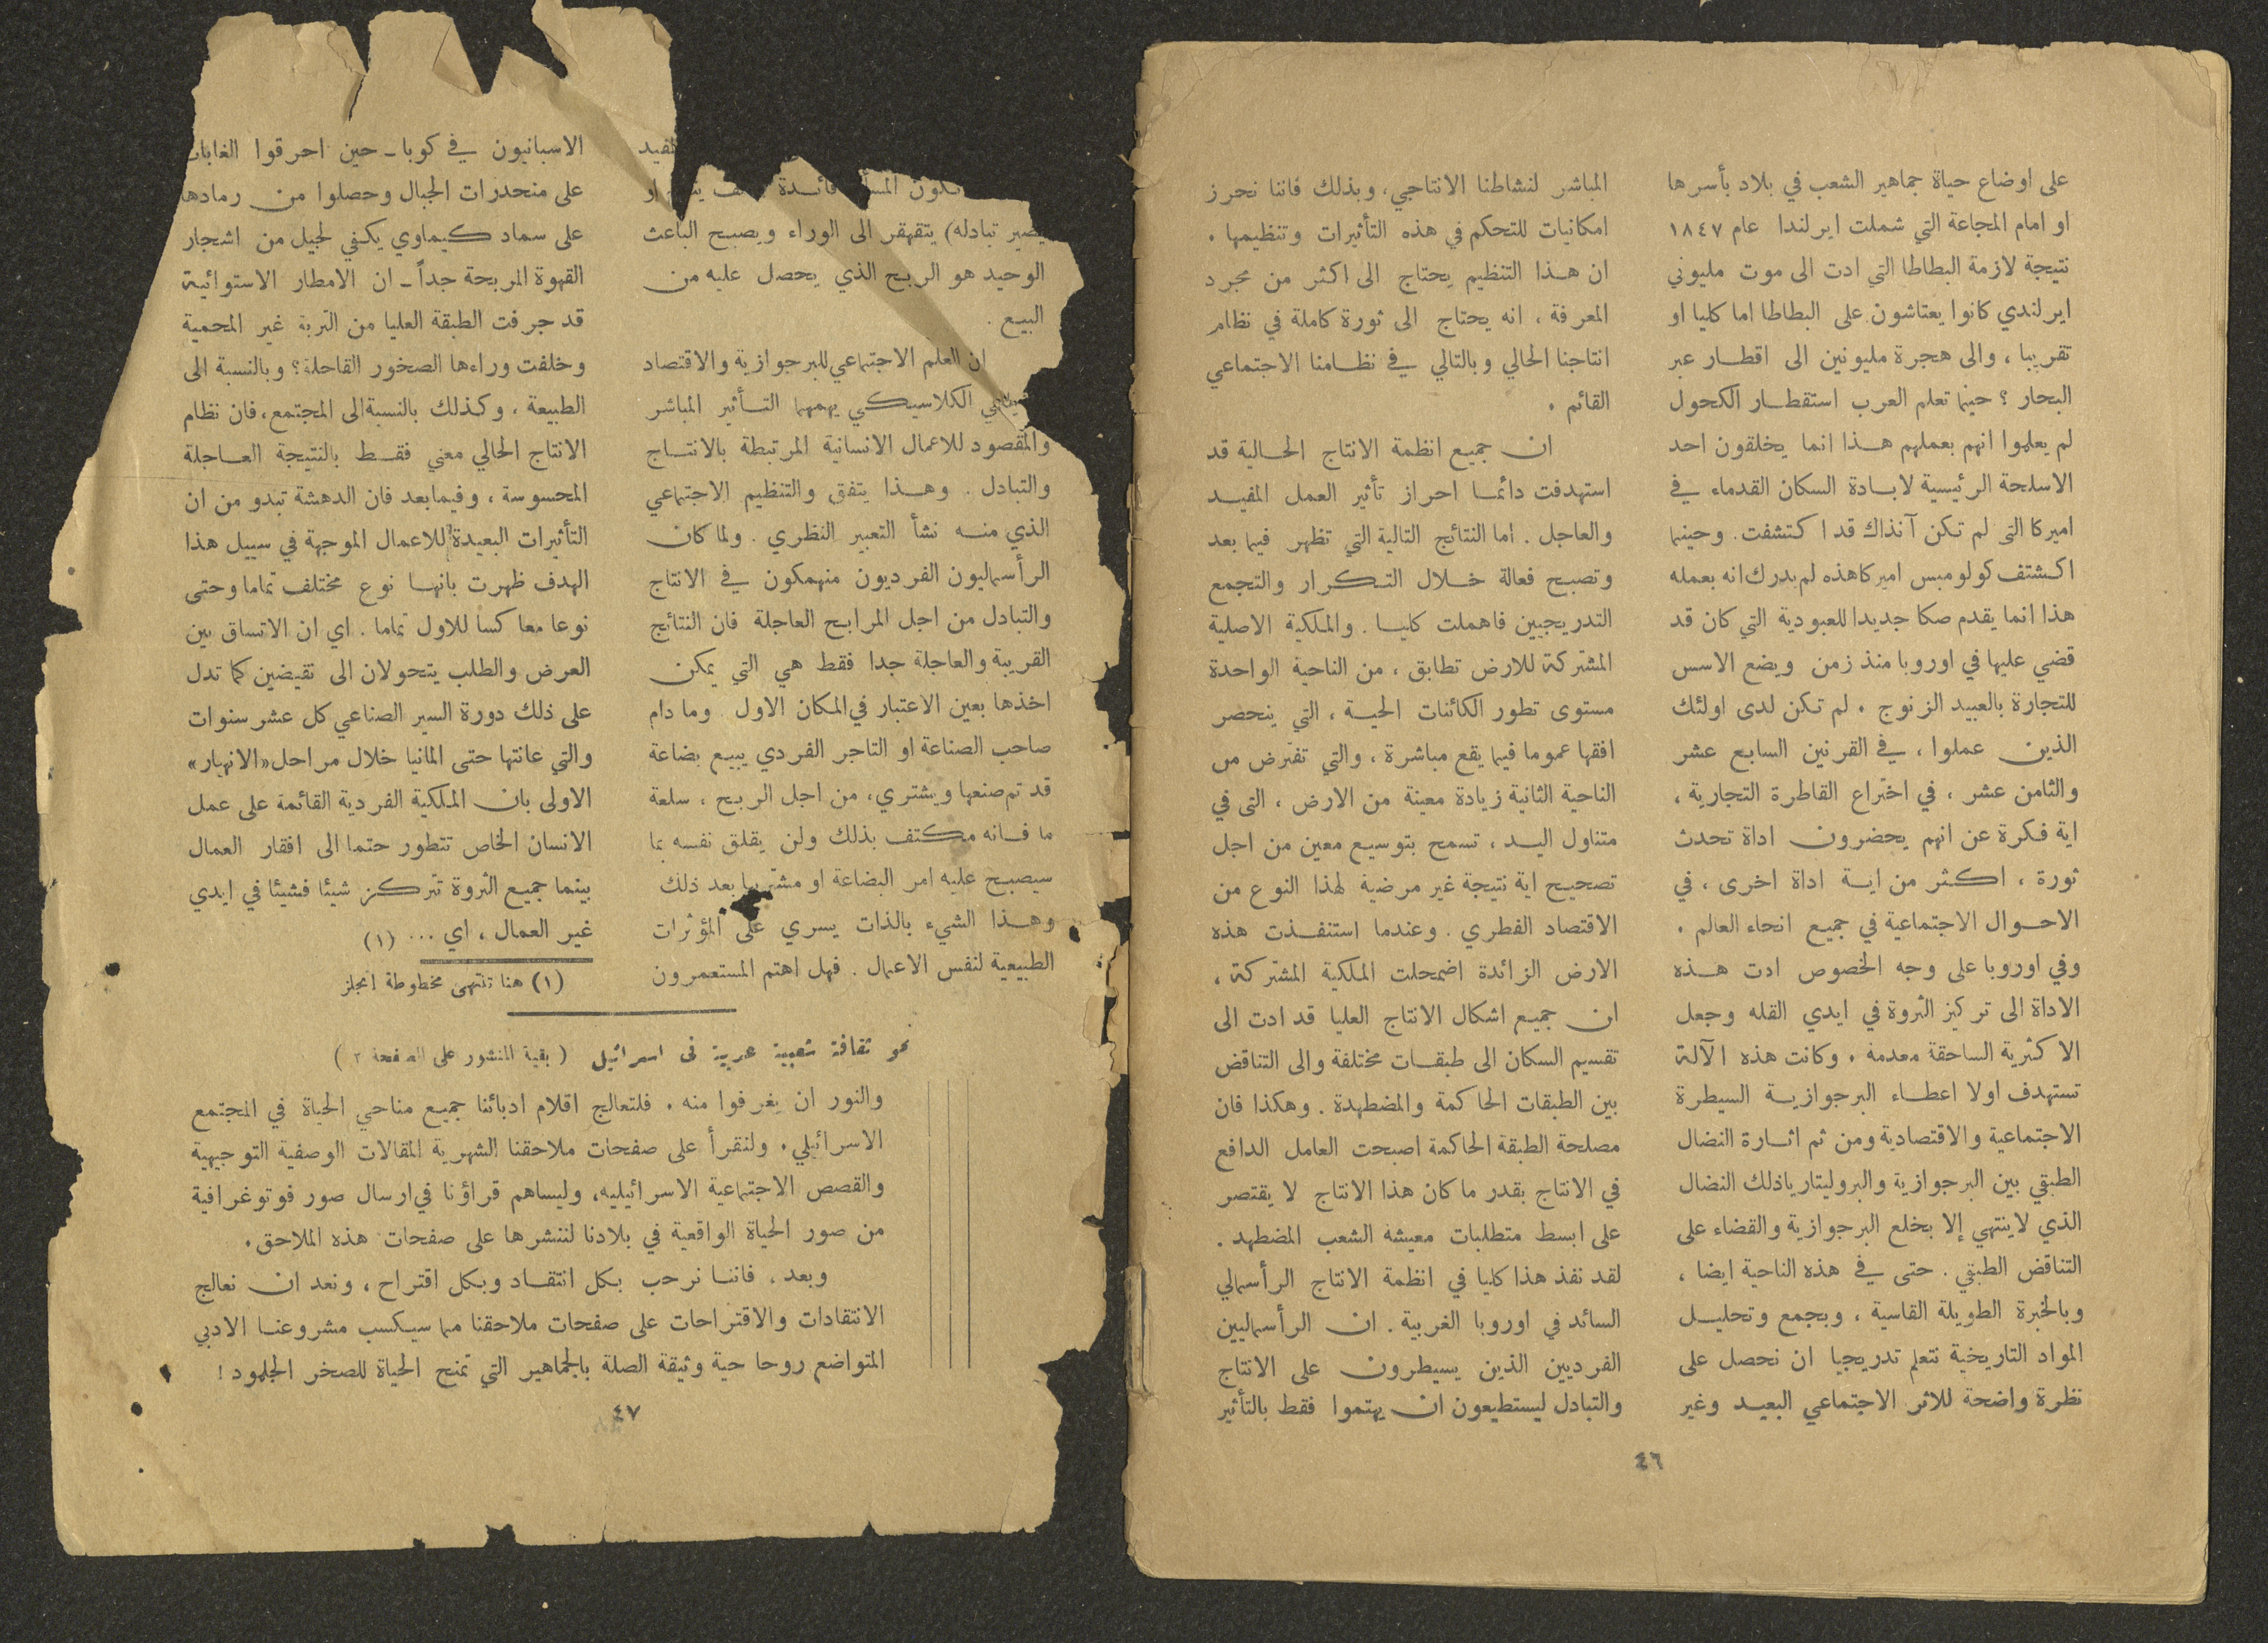 على اوضاع حياة جماهير الشعب في بلاد بأسرها
او امام المجاعة التي شملت ايرلندا عام ١٨٤٧
نتيجة لازمة البطاطا التي ادت الى موت مليوني
ايرلندي كانوا يعتاشون على البطاطا اما كليا او
تقريبا ، والى هجرة مليونين الى اقطار عبر
البحار ؟ حينما تعلم العرب استقطار الكحول
لم يعلموا انهم بعملهم هذا انما يخلقون احد
الاسلحة الرئيسية لابادة السكان القدماء في
اميركا التي لم تكن آنذاك قد اكتشفت . وحينما
اكتشتف كولومبس اميركا هذه لم يدرك انه بعمله
هذا انما يقدم صكا جديدا للعبودية التي كان قد
قضي عليها في اوروبا منذ زمن ويضع الاسس
للتجارة بالعبيد الزنوج . لم تكن لدى اولئك
الذين عملوا ، في القرنين السابع عشر
والثامن عشر ، في اختراع القاطرة التجارية ،
اية فكرة عن انهم يحضرون اداة تحدث
ثورة ، اكثر من اية اداة اخرى ، في
الاحوال الاجتماعية في جميع انحاء العالم .
وفي اوروبا على وجه الخصوص ادت هذه
الاداة الى تركيز الثروة في ايدي القله وجعل
الاكثرية الساحقة معدمة . وكانت هذه الآلة
تستهدف اولا اعطاء البرجوازية السيطرة
الاجتماعية والاقتصادية ومن ثم اثارة النضال
الطبقي بين البرجوازية والبروليتاريا ذلك النضال
الذي لاينتهي إلا بخلع البرجوازية والقضاء على
التناقض الطبقي . حتى في هذه الناحية ايضا ،
وبالخبرة الطويلة القاسية ، وبجمع وتحليل
المواد التاريخية نتعلم تدريجيا ان نحصل على
نظرة واضحة للاثر الاجتماعي البعيد وغير
المباشر لنشاطنا الانتاجي ، وبذلك فاننا نحرز
امكانيات للتحكم في هذه التأثيرات وتنظيمها .
ان هذا التنظيم يحتاج الى اكثر من مجرد
المعرفة ، انه يحتاج الى ثورة كاملة في نظام
انتاجنا الحالي وبالتالي في نظامنا الاجتماعي
القائم .
ان جميع انظمة الانتاج الحالية قد
استهدفت دائما احراز تأثير العمل المفيد
والعاجل . اما النتائج التالية التي تظهر فيما بعد
وتصبح فعالة خلال التكرار والتجمع
التدريجيين فاهملت كليا . والملكية الاصلية
المشتركة للارض تطابق ، من الناحية الواحدة
مستوى تطور الكائنات الحية ، التي ينحصر
افقها عموما فيما يقع مباشرة ، والتي تفترض من
الناحية الثانية زيادة معينة من الارض ، التى في
متناول اليد ، تسمح بتوسيع معين من اجل
تصحيح اية نتيجة غير مرضية لهذا النوع من
الاقتصاد الفطري . وعندما استنفذت هذه
الارض الزائدة اضمحلت الملكية المشتركة ،
ان جميع اشكال الانتاج العليا قد ادت الى
تقسيم السكان الى طبقات مختلفة والى التناقض
بين الطبقات الحاكمة والمضطهدة . وهكذا فان
مصلحة الطبقة الحاكمة اصبحت العامل الدافع
في الانتاج بقدر ما كان هذا الانتاج لا يقتصر
على ابسط متطلبات معيشة الشعب المضطهد .
لقد نفذ هذا كليا في انظمة الانتاج الرأسمالي
السائد في اوروبا الغربية . ان الرأسماليين
الفرديين الذين يسيطرون على الانتاج
والتبادل ليستطيعون ان يهتموا فقط بالتأثير
٤٦
المفيد
تكون فائدة او
يصير تبادله) يتقهقر الى الوراء ويصبح الباعث
الوحيد هو الربح الذي يحصل عليه من
البيع .
ان العلم الاجتماعي للبرجوازية والاقتصاد
الكلاسيكي يهمهما التأثير المباشر
والمقصود للاعمال الانسانية المرتبطة بالانتاج
والتبادل . وهذا يتفق والتنظيم الاجتماعي
الذي منه نشأ التعبير النظري . ولما كان
الرأسماليون الفرديون منهمكون في الانتاج
والتبادل من اجل المرابح العاجلة فان النتائج
القريبة والعاجلة جدا فقط هي التي يمكن
اخذها بعين الاعتبار في المكان الاول . وما دام
صاحب الصناعة او التاجر الفردي يبيع بضاعة
قد تم صنعها ويشتري ، من اجل الربح ، سلعة
ما فانه مكتف بذلك ولن يقلق نفسه بما
سيصبح عليه امر البضاعة او مشتريها بعد ذلك
وهذا الشيء بالذات يسري على المؤثرات
الطبيعية لنفس الاعمال . فهل اهتم المستعمرون
الاسبانيون في كوبا ـ حين احرقوا الغابات
على منحدرات الجبال وحصلوا من رمادها
على سماد كيماوي يكفي لجيل من اشجار
القهوة المربحة جداً ـ ان الامطار الاستوائية
قد جرفت الطبقة العليا من التربة غير المحمية
وخلفت وراءها الصخور القاحلة ؟ وبالنسبة الى
الطبيعة ، وكذلك بالنسبة الى المجتمع ، فان نظام
الانتاج الحالي معني فقط بالنتيجة العاجلة
المحسوسة ، وفيما بعد فان الدهشة تبدو من ان
التأثيرات البعيدة للاعمال الموجهة في سبيل هذا
الهدف ظهرت بانها نوع مختلف تماما وحتى
نوعا معاكسا للاول تماما . اي ان الاتساق بين
العرض والطلب يتحولان الى نقيضين كما تدل
على ذلك دورة السير الصناعي كل عشر سنوات
والتي عانتها حتى المانيا خلال مراحل «الانهيار»
الاولى بان الملكية الفردية القائمة على عمل
الانسان الخاص تتطور حتما الى افقار العمال
بينما جميع الثروة تتركز شيئا فشيئا في ايدي
غير العمال ، اي ... (١)
(١) هنا تنتهى مخطوطة انجلز
نحو ثقافة شعبية عربية فى اسرائيل ( بقية المنشور على الصفحة ٢ )
والنور ان يغرفوا منه . فلتعالج اقلام ادبائنا جميع مناحي الحياة في المجتمع
الاسرائيلي . ولنقرأ على صفحات ملاحقنا الشهرية المقالات الوصفية التوجيهية
والقصص الاجتماعية الاسرائيليه ، وليساهم قراؤنا في ارسال صور فوتوغرافية
من صور الحياة الواقعية في بلادنا لننشرها على صفحات هذه الملاحق .
وبعد ، فاننا نرحب بكل انتقاد وبكل اقتراح ، ونعد ان نعالج
الانتقادات والاقتراحات على صفحات ملاحقنا مما سيكسب مشروعنا الادبي
المتواضع روحا حية وثيقة الصلة بالجماهير التي تمنح الحياة للصخر الجلمود !
٤٧